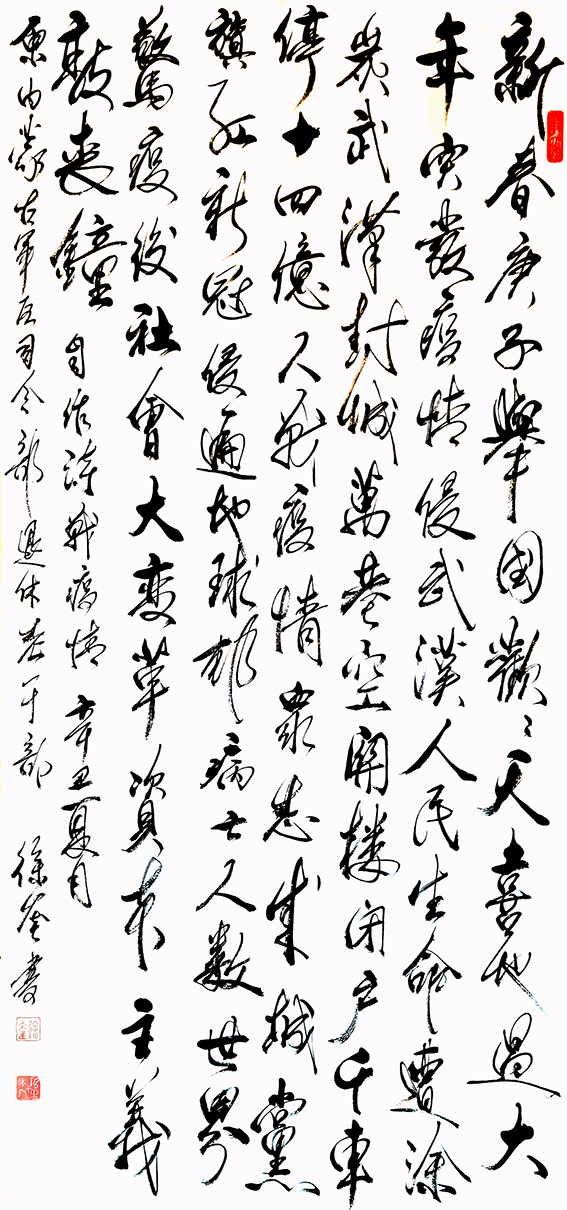 新春庚子舉國歡ミ天喜地過大
年突發疫情侵武漢人民生命遭涂
炭武漢封城萬巷空關樓閉户千車
停十四億人戰疫情眾志成城黨
旗紅新冠侵遍地球邨病亡人數世界
驚疫後社會大變革資本主義
敲喪鐘 自作詩戰疫情 辛丑夏月
原内蒙古軍區司令部退休老干部 徐奎書